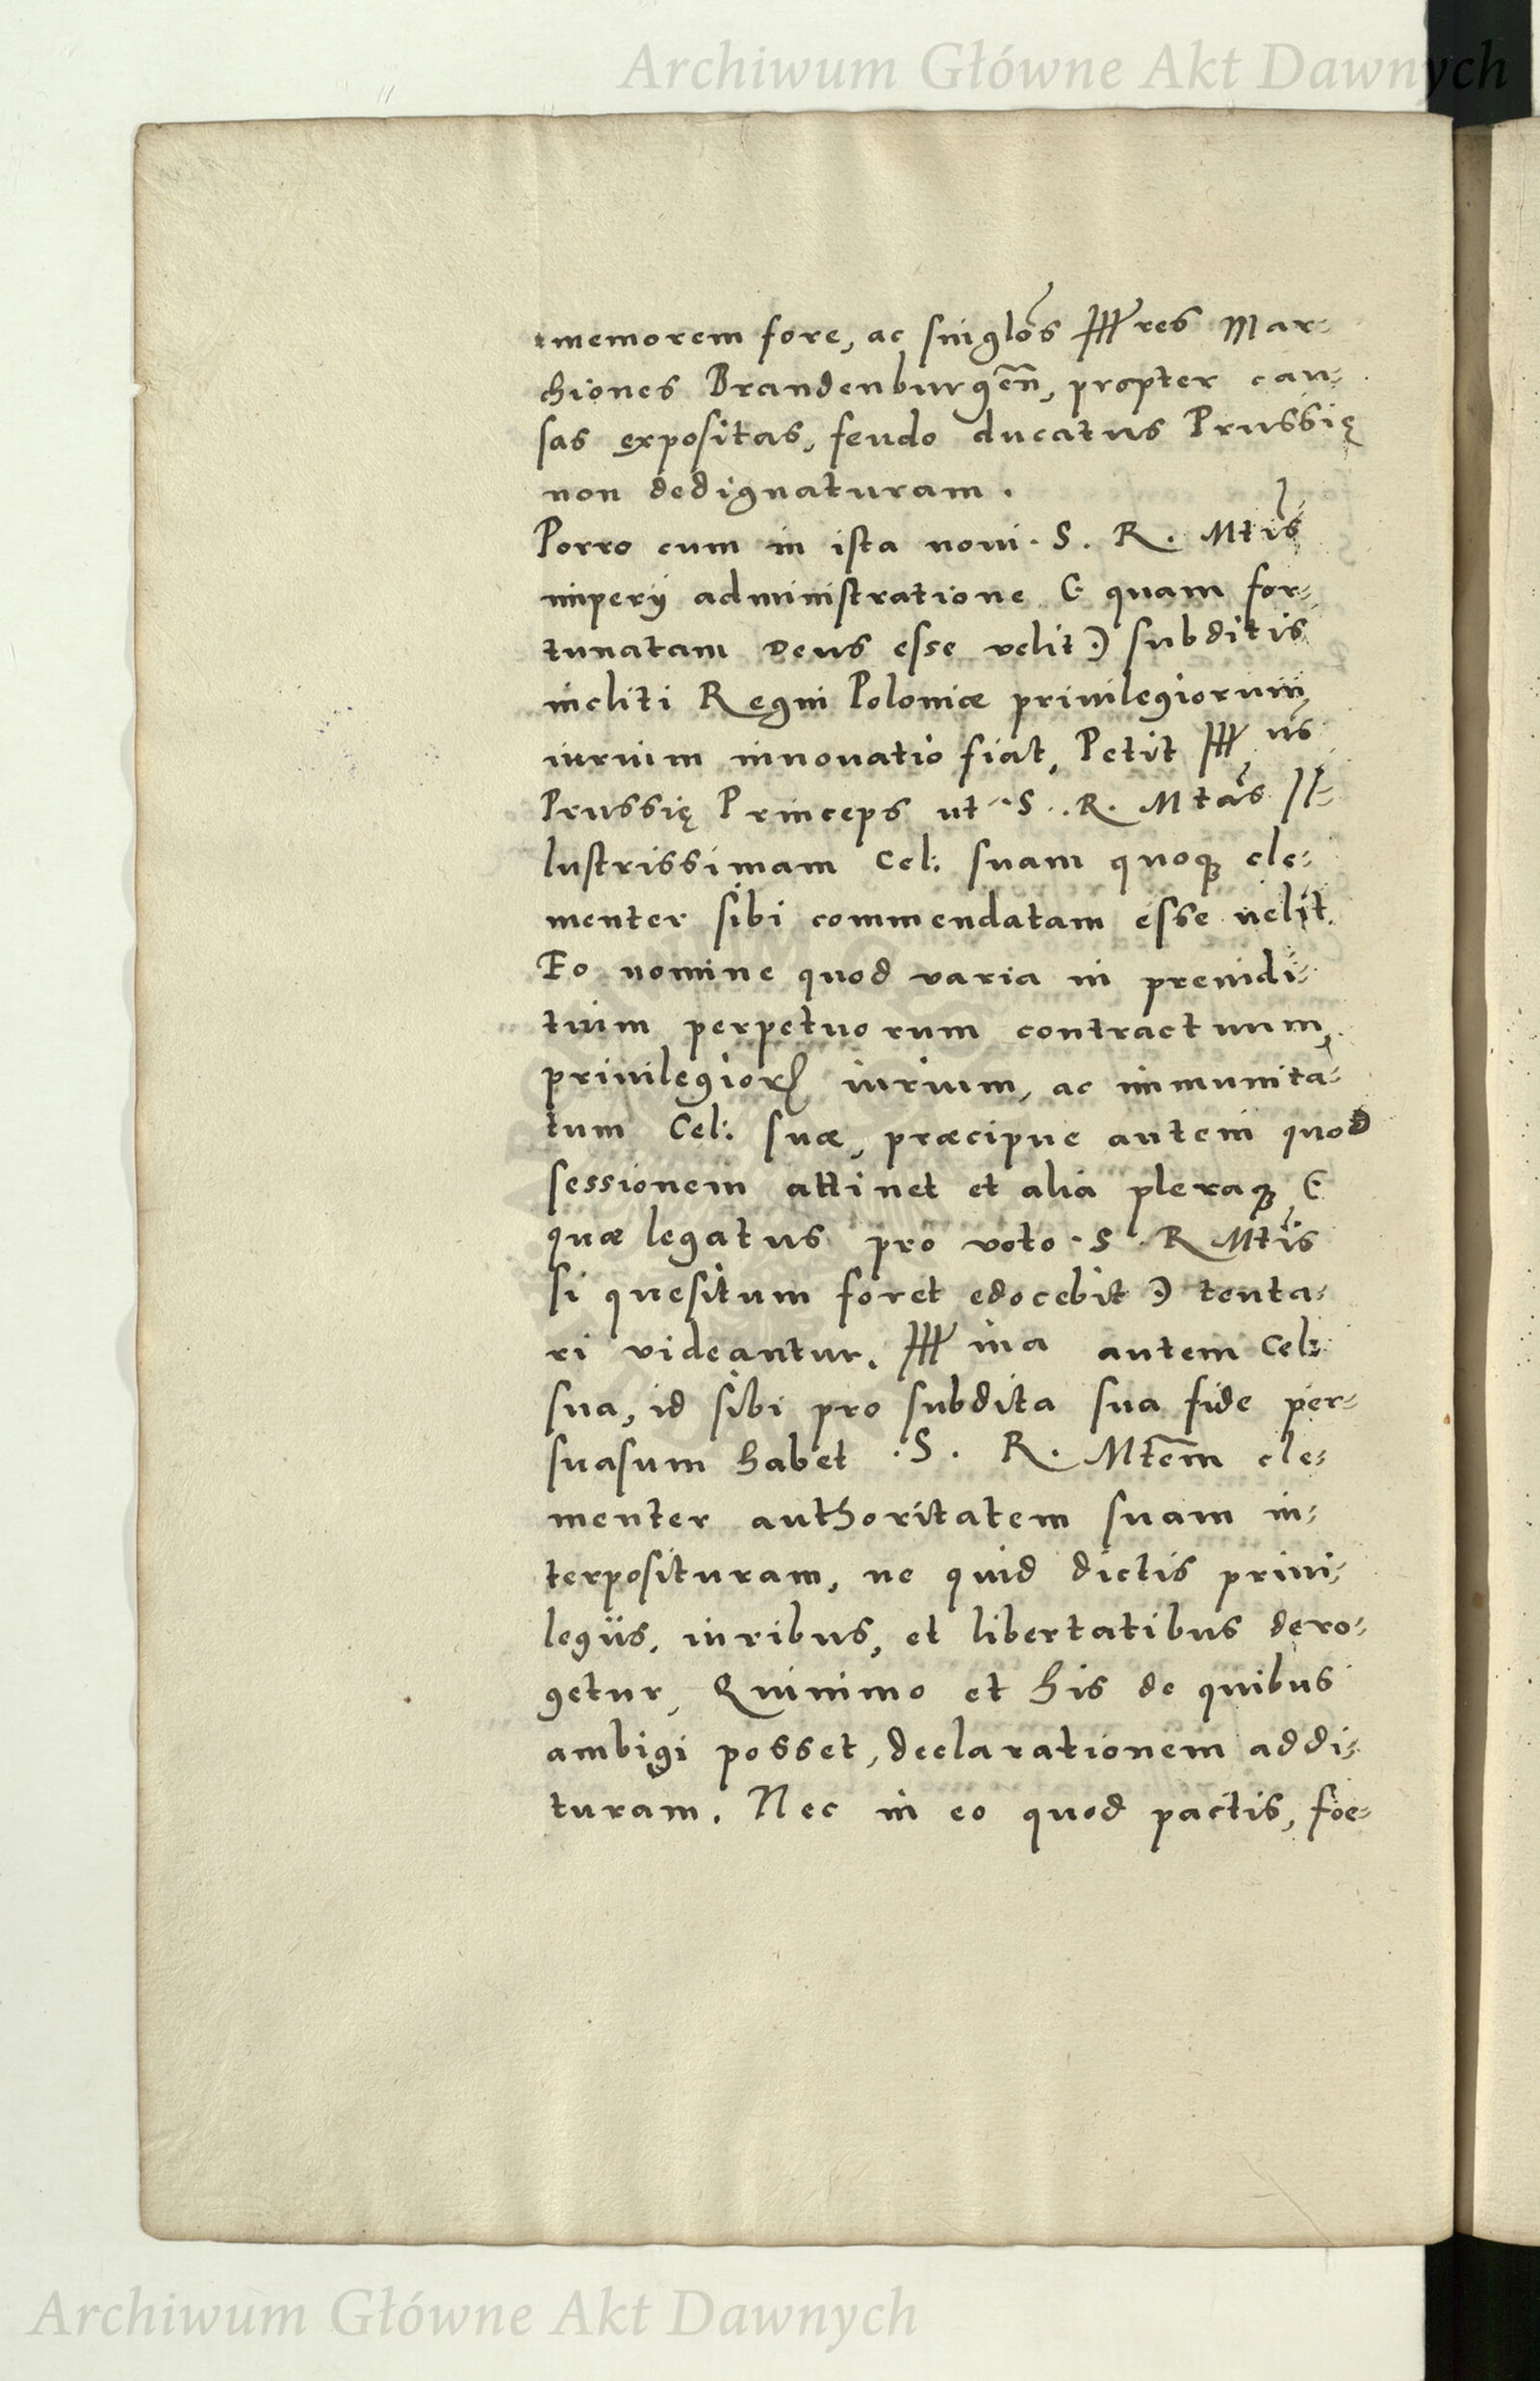 Archiwum Główne Akt Dawnych
memorem fore, ac singlos Illres Mar=
chiones Brandenburgen, propter cau=
sas expositas, feudo ducatus Prussię
non dedignaturam.
Porro cum in ista noui. S. R. Mtis
imperij administratione (: quam for=
tunatam Deus esse velit :) subditis
incliti Regni Poloniæ priuilegiorum,
iurium innouatio fiat, Petit Illus
Prussię Princeps ut S. R. Mtas Il=
lustrissimam Cel: suam quoqꝫ cle=
menter sibi commendatam esse uelit.
Eo nomine quod varia in preiudi=
tium perpetuorum contractuum,
priuilegiorꝝ iurium, ac immunita=
tum Cel: suæ, præcipue autem quod
sessionem attinet et alia pleraqꝫ (:
quæ legatus pro voto S. R Mtis
si quesitum foret edocebit :) tenta=
ri videantur. Illma autem Cel:
sua, id sibi pro subdita sua fide per=
suasum habet .S. R. Mtem cle=
menter authoritatem suam in=
terposituram, ne quid dictis priui=
legiis, iuribus, et libertatibus dero=
getur, Quinimo et his de quibus
ambigi posset, declarationem addi=
turam. Nec in eo quod pactis, foe=
Archiwum Główne Akt Dawnych